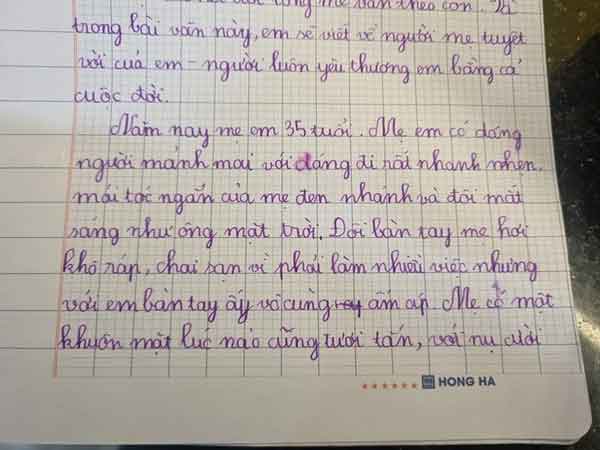 lòng mẹ vẫn theo con". Và
trong bài văn này, em sẽ viết về người mẹ tuyệt
vời của em - người luôn yêu thương em bằng cả
cuộc đời.
Năm nay mẹ em 35 tuổi. Mẹ em có dáng
người mảnh mai với dáng đi rất nhanh nhẹn.
mái tóc ngắn của mẹ đen nhánh và đôi mắt
sáng như ông mặt trời. Đôi bàn tay mẹ hơi
khô ráp, chai sạn vì phải làm nhiều việc nhưng
với em bàn tay ấy vô cùng ấm áp. Mẹ có một
khuôn mặt lúc nào cũng tươi tắn, với nụ cười
HONG HA